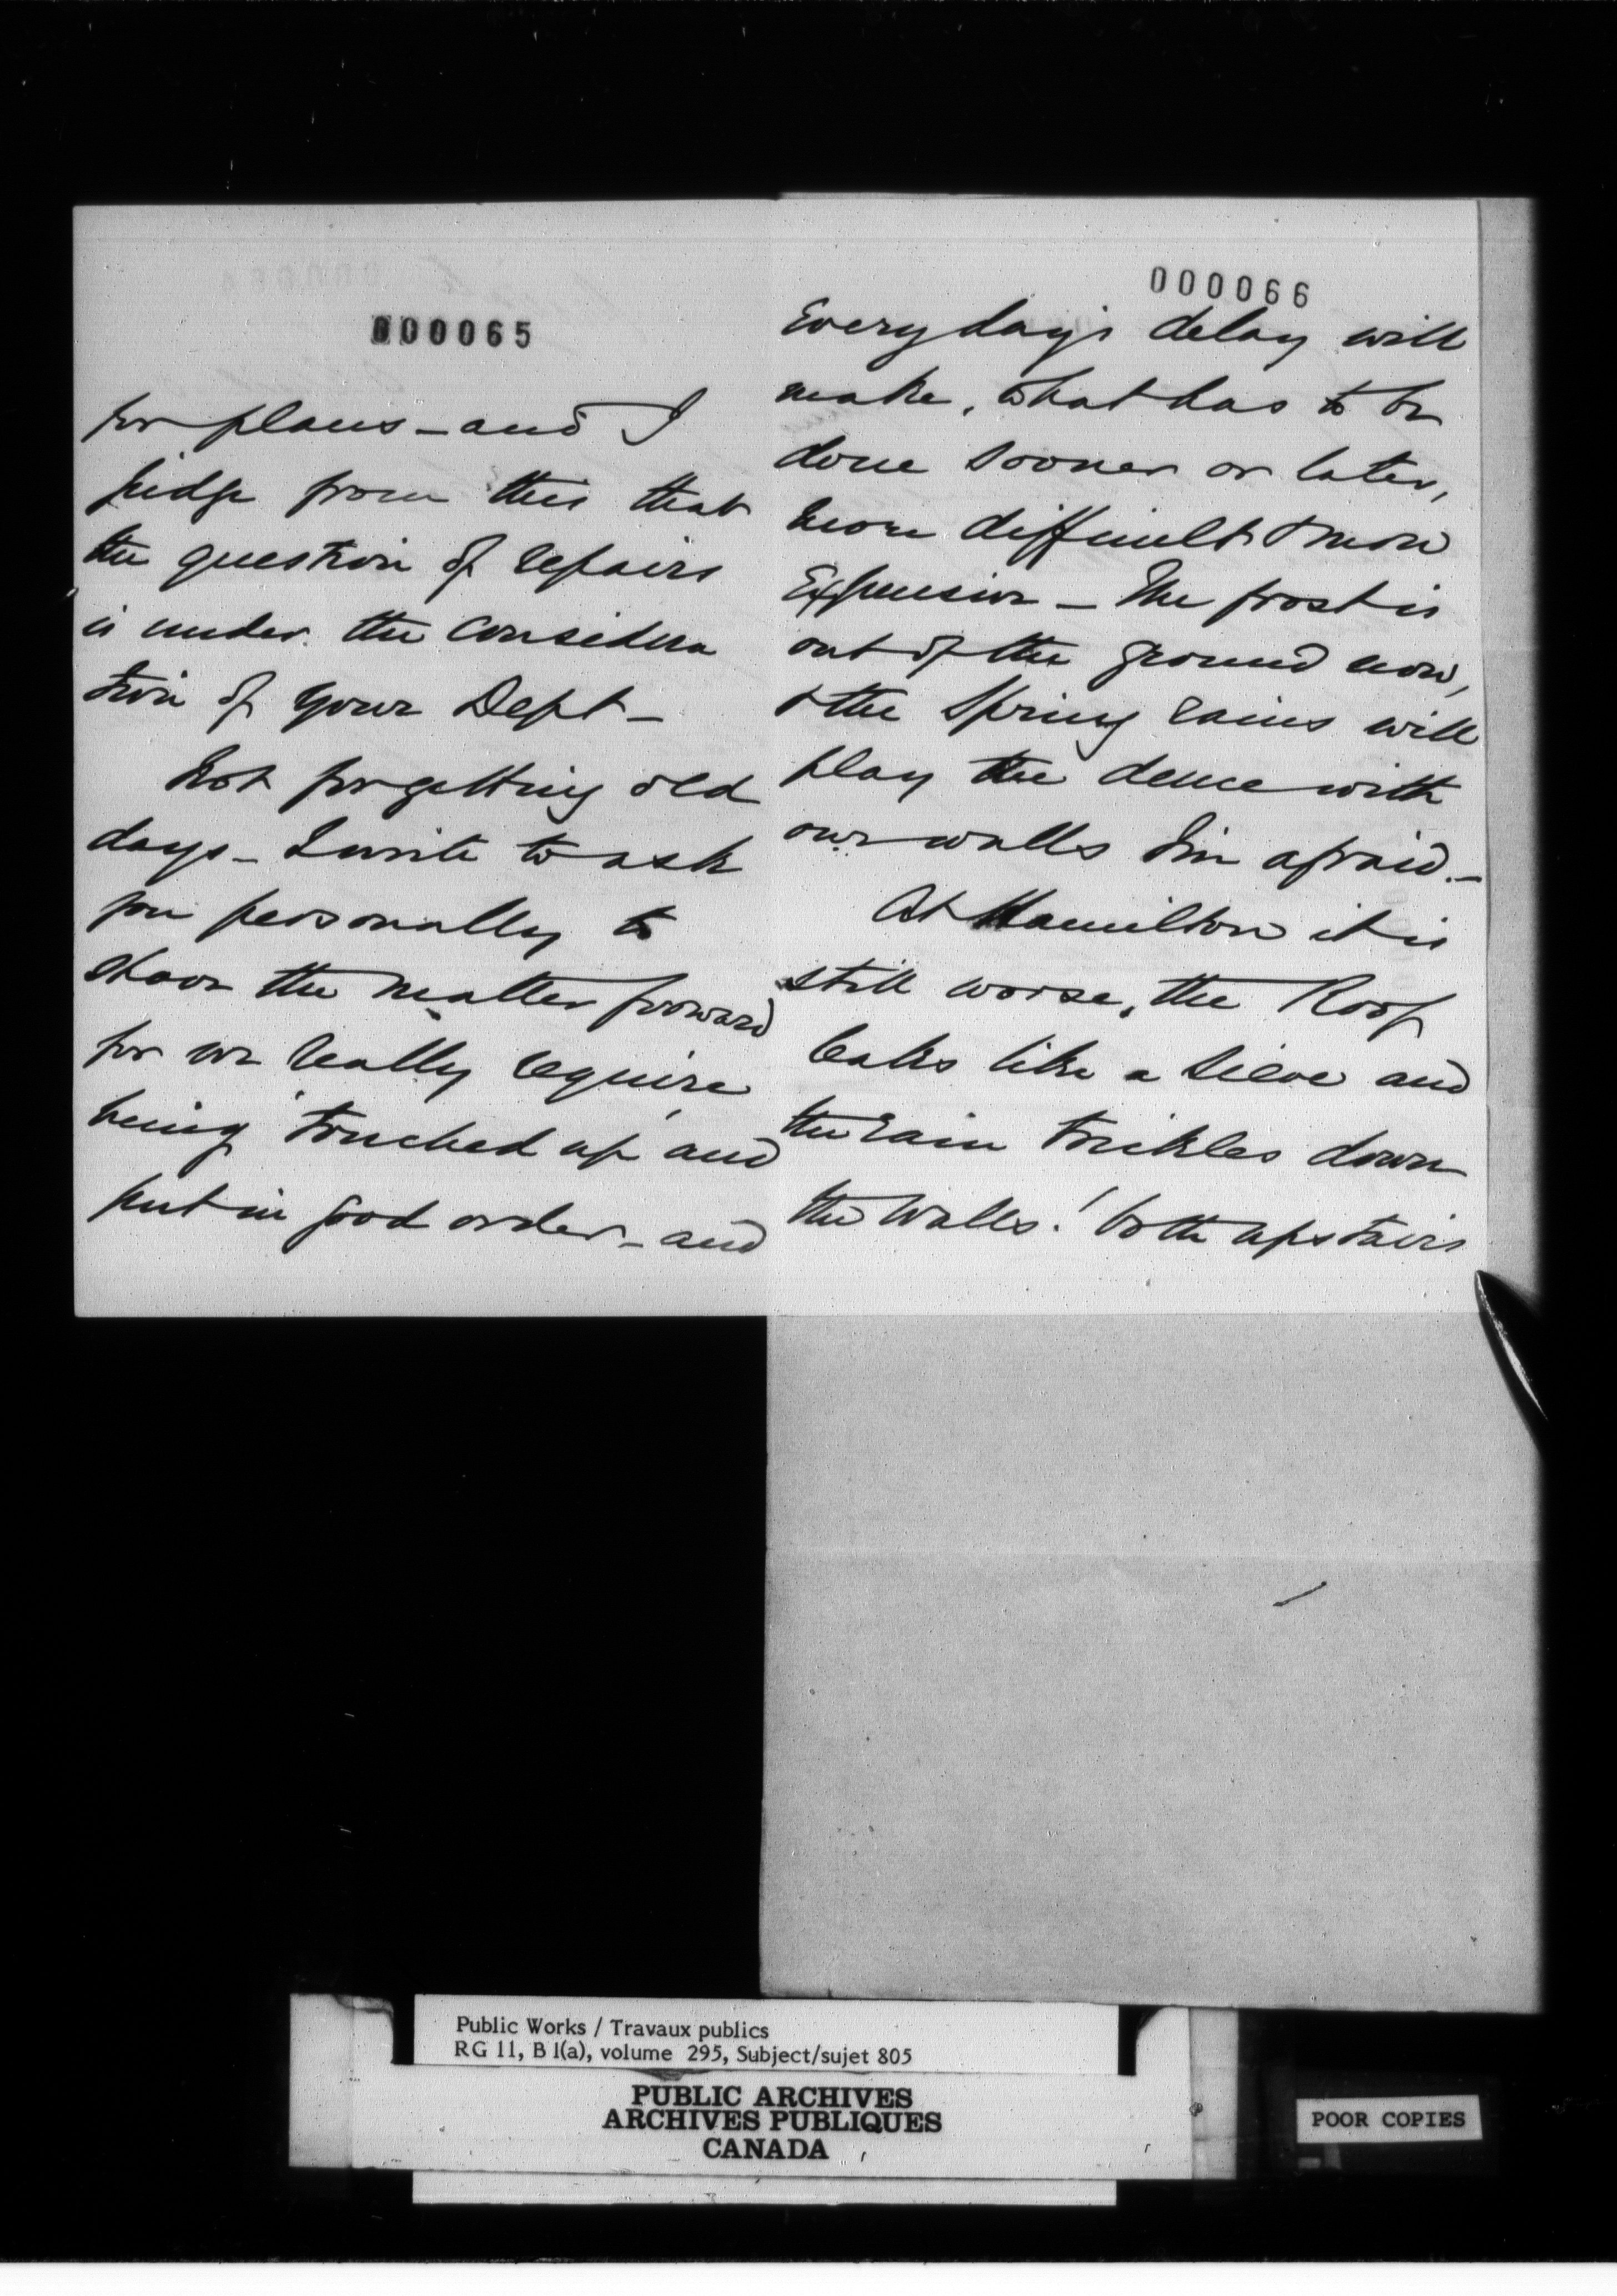 000065
for plans - and I
judge from this that
the question of repairs
is under the considera
tion of your Dept -
Not forgetting old
days - I write to ask
you personally to
shove the matter forward
for we really require
being 'touched up' and
put in good order - and
000066
Every day's delay will
make, what has to be
done sooner or later,
more difficult & more
Expensive - The frost is
out of the ground now,
& the Spring rains will
play the deuce with
our walls I'm afraid. -
At Hamilton it is
still worse, the Roof
leaks like a Sieve and
the rain trickles down
the Walls! both upstairs
Public Works / Travaux publics
RG 11, B 1(a), volume 295, Subject/sujet 805
PUBLIC ARCHIVES
ARCHIVES PUBLIQUES
CANADA
POOR COPIES